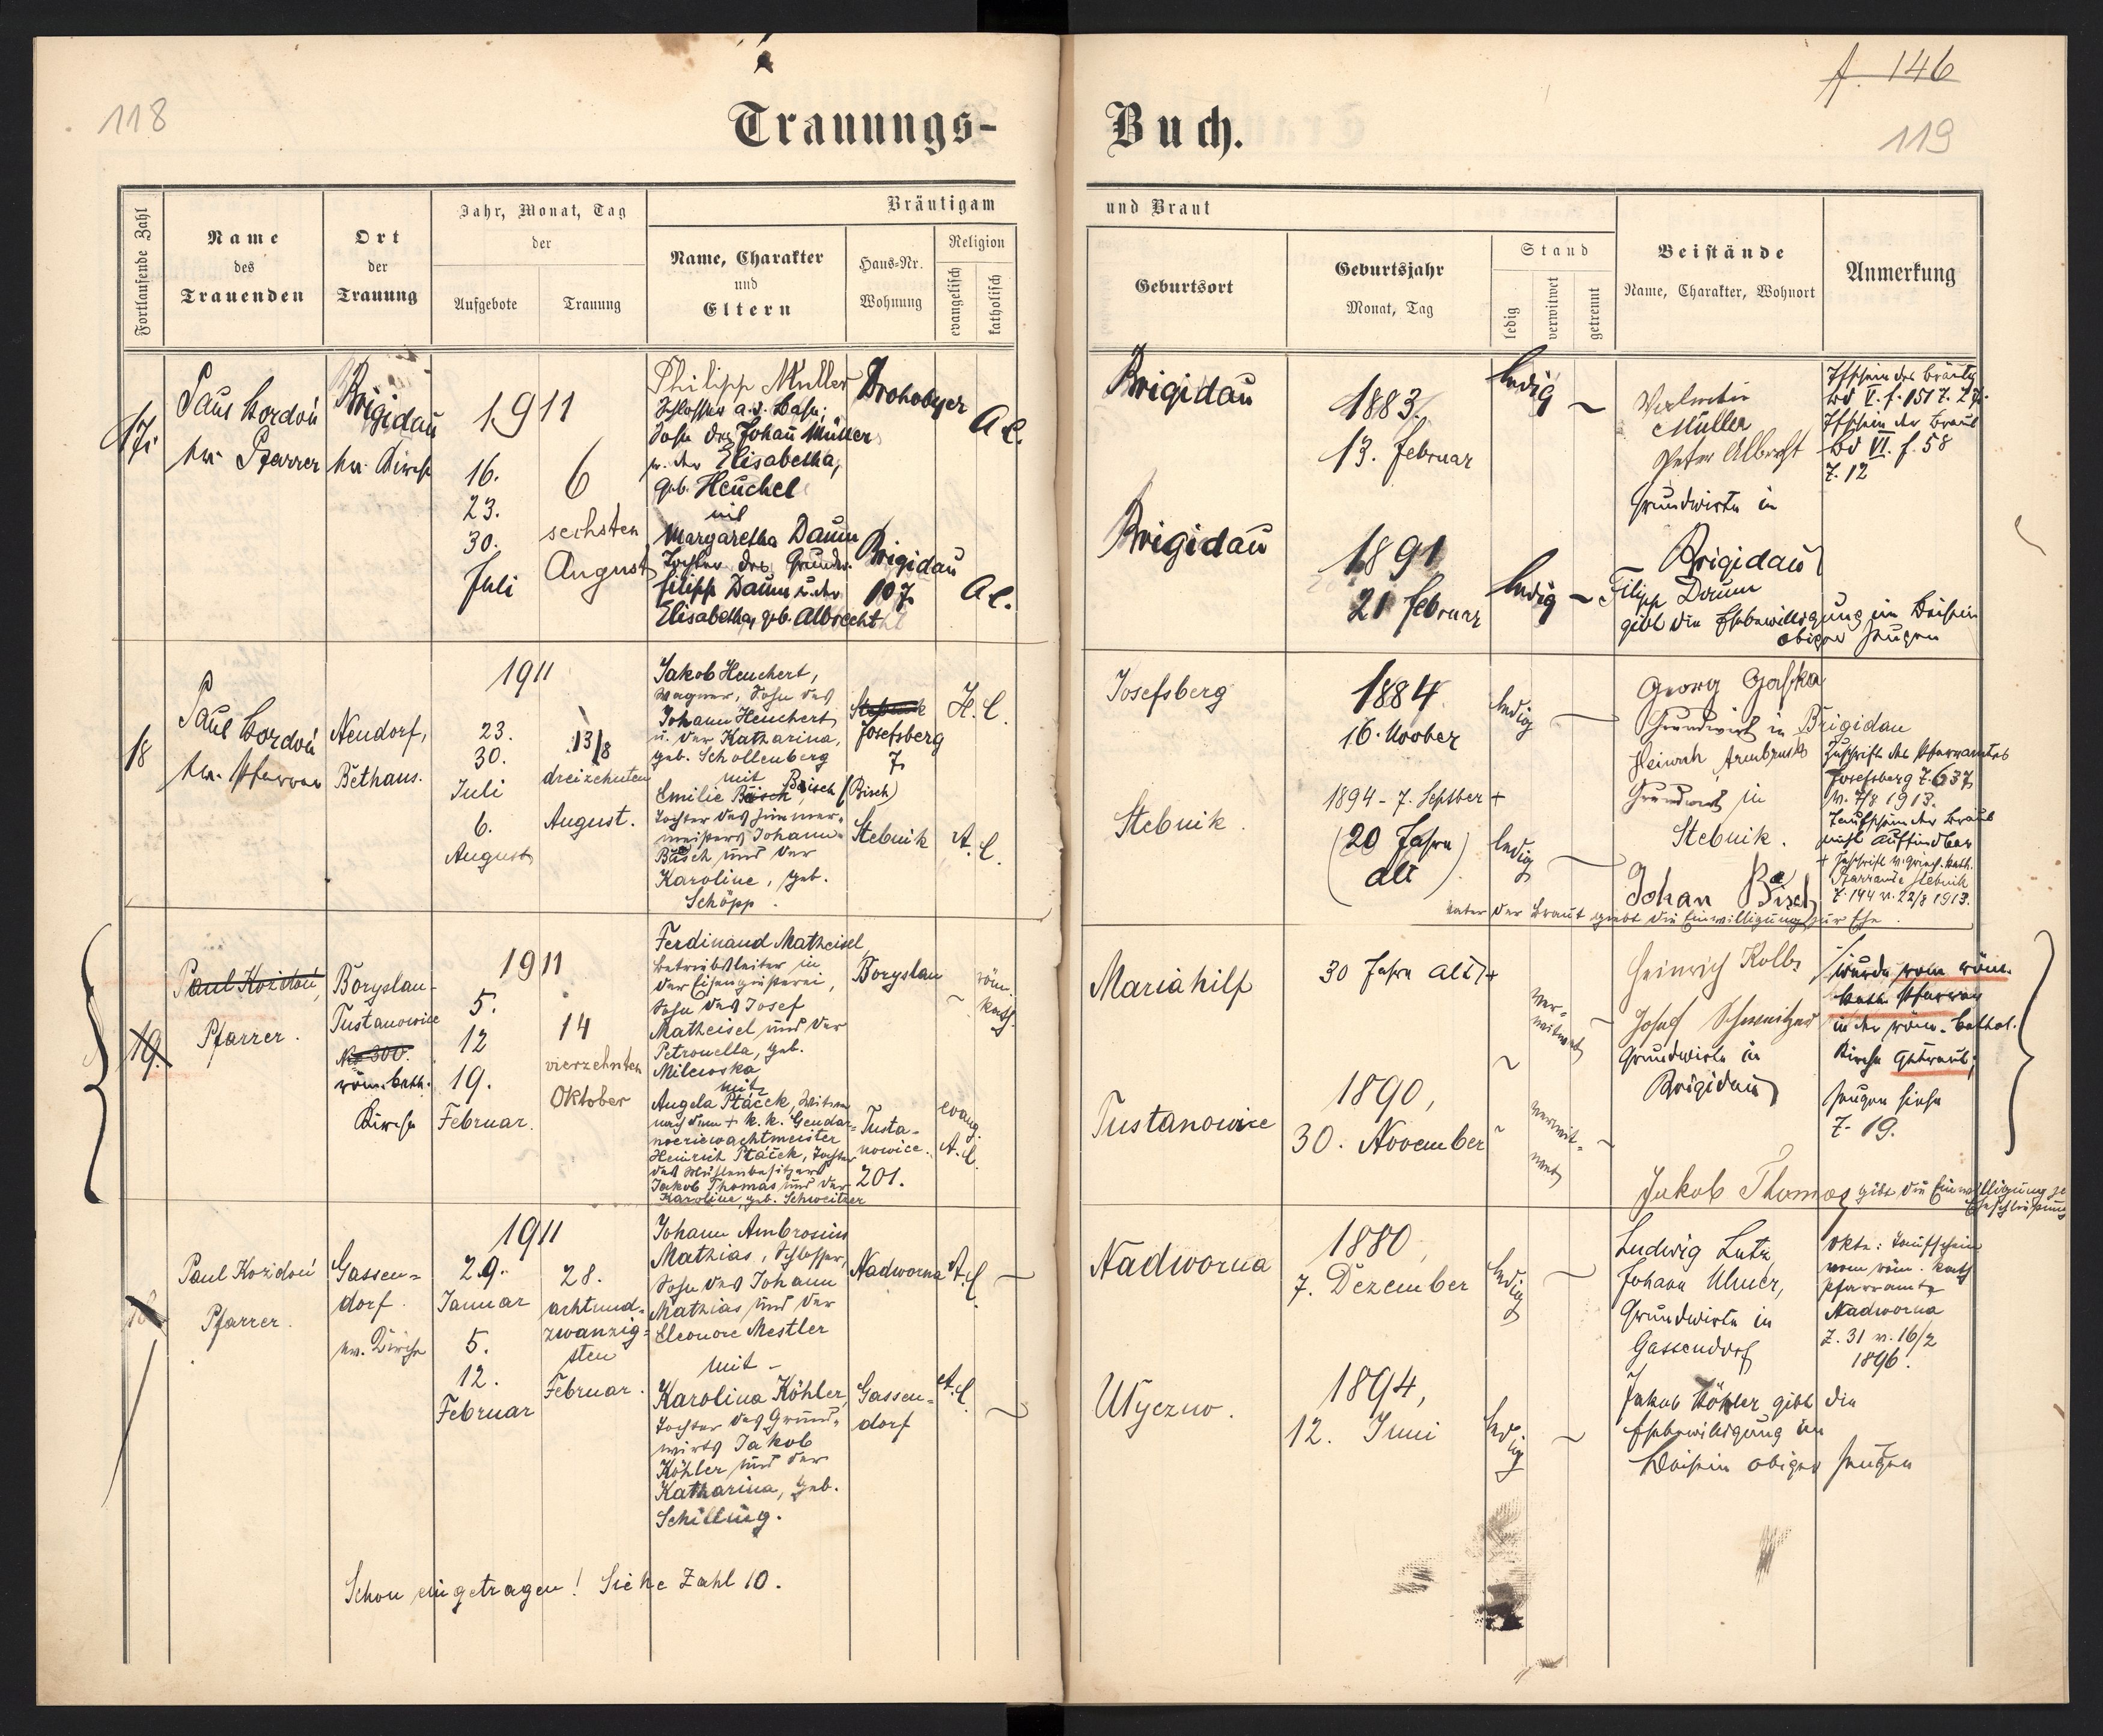 118
f. 146
119
Trauungs-
Buch.
Fortlaufende Zahl
Name
des
Trauenden
Ort
der
Trauung
Jahr, Monat, Tag
der
Aufgebote
Trauung
Bräutigam
Name, Charakter
und
Eltern
Haus-Nr.
Wohnung
Religion
evangelisch
katholisch
und Braut
Geburtsort
Geburtsjahr
Monat, Tag
Stand
ledig
verwitwet
getrennt
Beistände
Name, Charakter, Wohnort
Anmerkung
17
Pfarrer
Brigidau
ev. Kirche
1911
16.
23.
30.
Juli
6
sechsten
August
Philipp Müller
Sohn des Johann Müller
u. der Elisabetha,
geb. Heuchel
mit
Margaretha Daum
Tochter des Grundw.
Filipp Daum u. der
Elisabetha, geb. Albrecht
Drohobycz
A.C.
Brigidau
107
A.C.
Brigidau
1883
13. Februar
ledig
Brigidau
1891
21 Februar
ledig
Valentin
Müller
Peter Albrecht
Grundwirte in
Brigidau
Filipp Daum
gibt die Ehebewilligung im Beisein
obiger Zeugen
Bd V. f. 151 Z. 27.
Bd VI. f. 58
Z. 12
18
ev. Pfarrer
Neudorf,
Bethaus.
1911
23.
30.
Juli
6.
August
13/8
dreizehnten
August.
Jakob Heuchert,
Wagner, Sohn des
Johann Heuchert
u. der Katharina,
geb. Schollenberg
mit
Emilie Bäisch (Bisch)
Tochter des Zimmer-
meisters Johann
Bäsch und der
Karoline, geb.
Schöpp.
Josefsberg
7
H.C.
Stebnik
A.C.
Josefsberg
1884
16.
ledig
Stebnik.
1894 - 7. Septber +
(20 Jahre
alt)
ledig
Georg
Grundwirt in Brigidau
Heinrich Armbruster
Grundwirt in
Stebnik.
Johan Bisch
Vater der Braut giebt die Einwilligung zur Ehe.
Zuschrift des Pfarramtes
Josefsberg Z. 637
v. 7/8 1913.
Taufschein der Braut
nicht auffindbar
+ Zuschrift v. griech. kath.
Pfarramte Stebnik
Z. 144 v. 22/8 1913.
19.
Paul Kozdoń,
Pfarrer.
Boryslau-
Tustanowice
No 300.
röm. kath.
Kirche
1911
5.
12
19.
Februar.
14
vierzehnten
Oktober
Ferdinand Matheisel,
Betriebsleiter in
der Eisengießerei,
Sohn des Josef
Matheisel und der
Petronella, geb.
Milewska
mit
Angela Ptáček, Witwe
nach dem + k. k. Gendar-
meriewachtmeister
Heinrich Ptáček, Tochter
des Mühlenbesitzers
Jakob Thomas und der
Karoline, geb. Schweitzer
Boryslau
röm.
kath.
Tusta-
nowice.
201.
evang.
A.C.
Mariahilf
30 Jahre alt +
ver-
witwet
Tustanowice
1890,
30. November
verwit-
wet
Heinrich Kolb
Josef Schweitzer
Grundwirte in
Brigidau
Jakob Thomas gibt die Einwilligung zu
Eheschließung
wurde vom röm.
kath. Pfarrer
in der röm. kathol.
Kirche getraut,
Zeugen siehe
Z. 19.
Paul Kozdoń
Pfarrer.
Gassen-
dorf.
ev. Kirche
1911
29.
Januar
5.
12.
Februar
28.
achtund-
zwanzig-
sten
Februar.
Johann Ambrosius
Mathias, Schlosser,
Sohn des Johann
Mathias und der
Eleonore Mestler
mit -
Karolina Köhler,
Tochter des Grund-
wirts Jakob
Köhler und der
Katharina, geb.
Schilling.
Nadworna
A.C.
Gassen-
dorf
A.C.
Nadworna
1880,
7. Dezember
ledig
1894,
12. Juni
ledig
Ludwig Lutz,
Johann Ulmer,
Grundwirte in
Gassendorf
Jakob Köhler gibt die
Ehebewilligung im
Beisein obiger Zeugen
Okta: Taufschein
vom röm. kath
Pfarramte
Nadworna
Z. 31 v. 16/2
1896.
Schon eingetragen! Siehe Zahl 10.